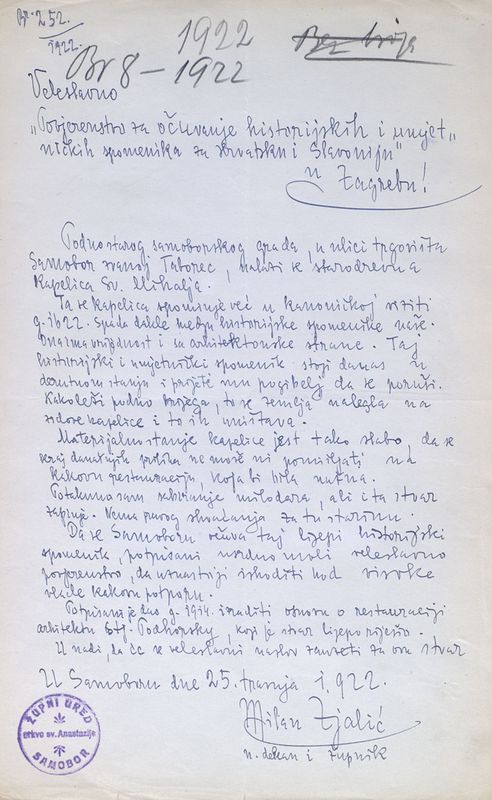 Br. 252.
1922.
1922
Br 8 – 1922
Bez broja
Veleslavno
„Povjerenstvo za očuvanje historijskih i umjet„
ničkih spomenika za Hrvatsku i Slavoniju"
u Zagrebu!
Podno starog samoborskog grada, u ulici trgovišta
Samobor zvanoj Taborec, nalazi se starodrevna
Kapelica Sv. Mihalja.
Ta se kapelica spominje već u kanoničkoj viziti
g. 1622. Spada dakle među historijske spomenike naše.
Ona ima vrijednost i sa arhitektonske strane. Taj
historijski i umjetnički spomenik stoji danas u
derutnom stanju i prijeti mu pogibelj da se poruši.
Kako leži podno brijega, to se zemlja nalegla na
zidove kapelice i to ih uništava.
Materijalno stanje kapelice jest tako slabo, da se
kraj današnjih prilika ne može ni pomišljati na
kakovu restauraciju, koja bi bila nužna.
Potaknuo sam sabiranje milodara, ali i ta stvar
zapinje. Nema pravog shvaćanja za tu starinu.
Da se Samoboru očuva taj lijepi historijski
spomenik, potpisani usrdno moli veleslavno
povjerenstvo, da uznastoji ishoditi kod visoke
vlade kakovu potporu.
Potpisani je dao g. 1914. izraditi osnovu o restauraciji
arhitektu Stj. Podhorsky, koji je stvar lijepo riješio.
U nadi, da će se veleslavni naslov zauzeti za ovu stvar
U Samoboru dne 25. travnja 1922.
Milan Zjalić
n. dekan i župnik
ŽUPNI URED
crkve sv. Anastazije
SAMOBOR